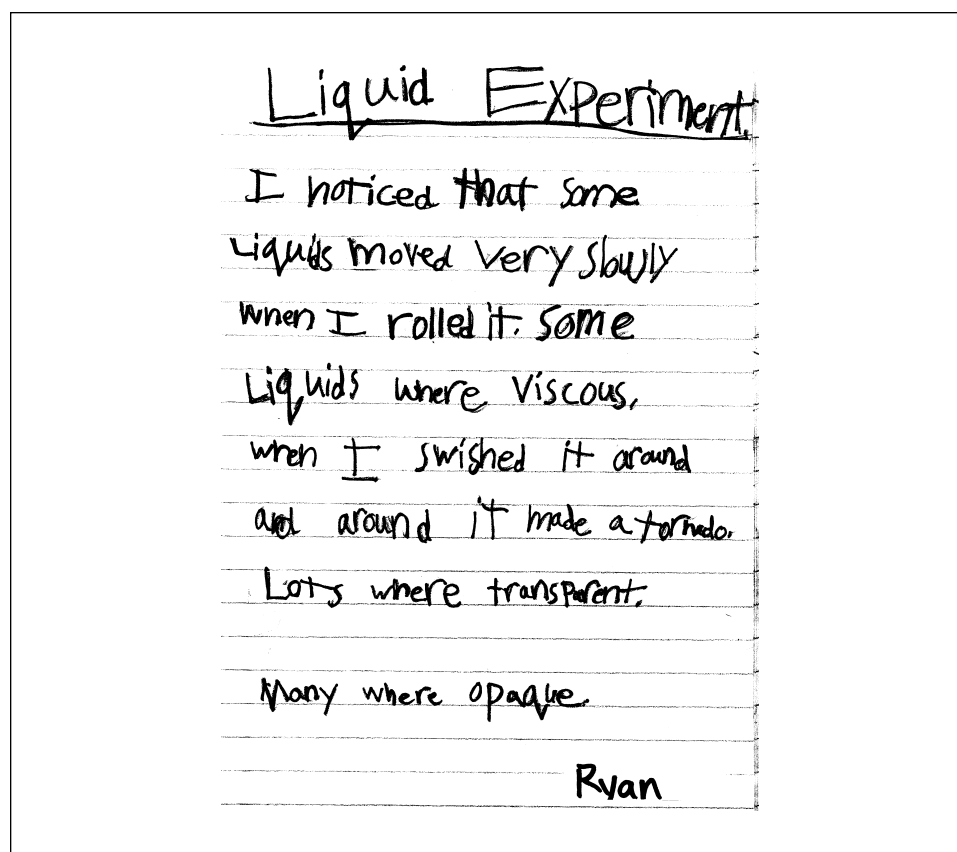 Liquid Experiment.
I noticed that some
Liquids moved very slowly
when I rolled it. Some
Liquids where Viscous,
when I swished it around
and around it made a tornado.
Lots where transparent.
Many where opaque.
Ryan